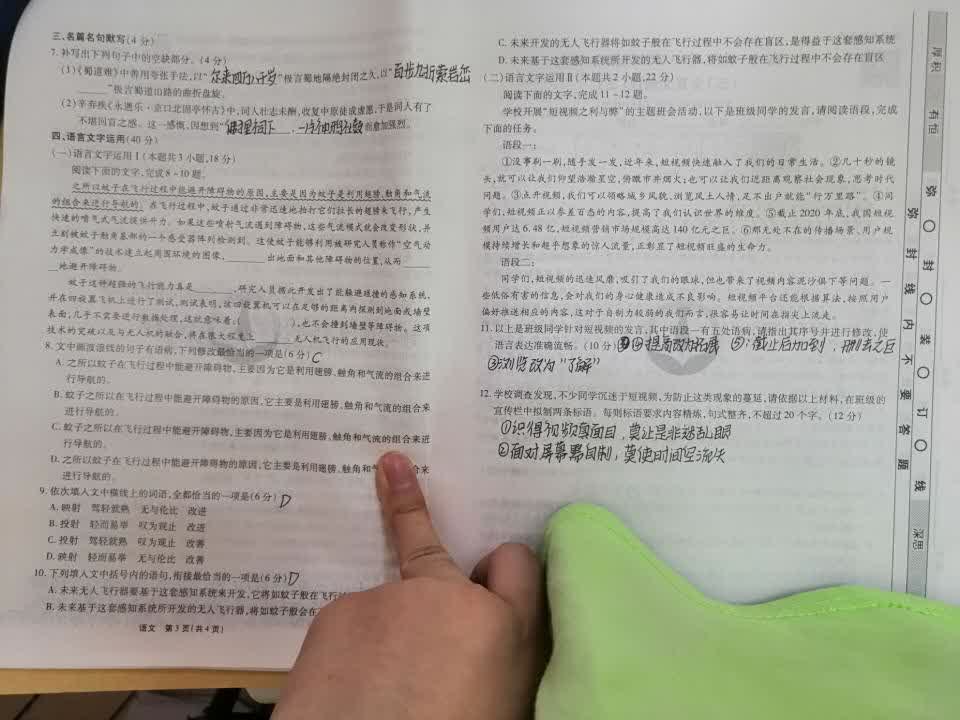 三、名篇名句默写(4分)
7. 补写出下列句子中的空缺部分。(4分)
(1)《蜀道难》中善用夸张手法,以“尔来四万八千岁”极言蜀地隔绝封闭之久,以“百步九折萦岩峦
”极言蜀道山路的曲折盘旋。
(2)辛弃疾《永遇乐·京口北固亭怀古》中,词人壮志未酬,收复中原徒成虚愿,于是词人有了
不堪回首之感。这一感慨,因想到“佛狸祠下,一片神鸦社鼓”而愈加强烈。
四、语言文字运用(40分)
(一)语言文字运用Ⅰ(本题共3小题,18分)
阅读下面的文字,完成8~10题。
之所以蚊子在飞行过程中能避开障碍物的原因,主要是因为蚊子是利用翅膀、触角和气流
的组合来进行导航的。在飞行过程中,蚊子通过非常迅速地拍打它们拉长的翅膀来飞行,产生
快速的喷气式气流提供升力。如果这些喷射气流遇到障碍物,这些气流模式就会改变形状,并
立刻被蚊子触角基部的一个感受器阵列检测到。这使蚊子能够利用被研究人员称作“空气动
力学成像”的技术建立起周围环境的图像,______出地面和其他障碍物的位置,从而______
地避开障碍物。
蚊子这种超强的飞行能力真是______,研究人员据此开发出了能躲避碰撞的感知系统,
并在四旋翼飞机上进行了测试,测试表明,该四旋翼机可以在足够的距离内探测到地面或墙壁
表面,几乎不需要进行数据处理,这就意味着:( ),也不会撞到墙壁等障碍物。这项
技术的突破以及与无人机的融合,将在很大程度上______无人机飞行的应用现状。
8. 文中画波浪线的句子有语病,下列修改最恰当的一项是(6分) C
A. 之所以蚊子在飞行过程中能避开障碍物,主要因为它是利用翅膀、触角和气流的组合来进
行导航的。
B. 蚊子之所以在飞行过程中能避开障碍物的原因,它主要是利用翅膀、触角和气流的组合来
进行导航的。
C. 蚊子之所以在飞行过程中能避开障碍物,主要因为它是利用翅膀、触角和气流的组合来进
行导航的。
D. 之所以蚊子在飞行过程中能避开障碍物的原因,它主要是利用翅膀、触角和气流的组合来
进行导航的。
9. 依次填入文中横线上的词语,全都恰当的一项是(6分) D
A. 映射 驾轻就熟 无与伦比 改进
B. 投射 轻而易举 叹为观止 改进
C. 投射 驾轻就熟 叹为观止 改善
D. 映射 轻而易举 无与伦比 改善
10. 下列填入文中括号内的语句,衔接最恰当的一项是(6分) D
A. 未来无人飞行器要基于这套感知系统来开发,它将如蚊子般在飞行
B. 未来基于这套感知系统所开发的无人飞行器,将如蚊子般会在
语文 第3页(共4页)
C. 未来开发的无人飞行器将如蚊子般在飞行过程中不会存在盲区,是得益于这套感知系统
D. 未来基于这套感知系统所开发的无人飞行器,将如蚊子般在飞行过程中不会存在盲区
(二)语言文字运用Ⅱ(本题共2小题,22分)
阅读下面的文字,完成11~12题。
学校开展“短视频之利与弊”的主题班会活动,以下是班级同学的发言,请阅读语段,完成
下面的任务。
语段一:
①没事刷一刷,随手发一发,近年来,短视频快速融入了我们的日常生活。②几十秒的镜
头,就可以让我们仰望浩瀚星空,俯瞰市井烟火;也可以让我们近距离观察社会现象,思考时代
问题。③点开视频,我们可以领略城乡风貌、浏览风土人情,足不出户就能“行万里路”。④同
学们,短视频正以多姿百态的内容,提高了我们认识世界的维度。⑤截止2020年底,我国短视
频用户达6.48亿,短视频营销市场规模高达140亿元之巨。⑥那无处不在的传播场景、用户规
模持续增长和超乎想象的惊人流量,正彰显了短视频旺盛的生命力。
语段二:
同学们,短视频的迅捷风靡,吸引了我们的眼球,但也带来了视频内容泥沙俱下等问题。一
些低俗有害的信息,会对我们的身心健康造成不良影响。短视频平台还能根据算法,按照用户
偏好推送相应的内容,这对于自制力较弱的我们而言,很容易让时间在指尖上流走。
11. 以上是班级同学针对短视频的发言,其中语段一有五处语病,请指出其序号并进行修改,使
语言表达准确流畅。(10分) ④提高改为拓展 ⑤:截止后加到,删去之巨
③浏览改为“了解”
12. 学校调查发现,不少同学沉迷于短视频,为防止这类现象的蔓延,请依据以上材料,在班级的
宣传栏中拟制两条标语。每则标语要求内容精炼,句式整齐,不超过20个字。(12分)
①识得视频真面目,莫让是非迷乱眼
②面对屏幕需自制,莫使时间空流失
厚积 有恒 深思
弥 封 线 内 不 要 答 题
弥 封 装 订 线